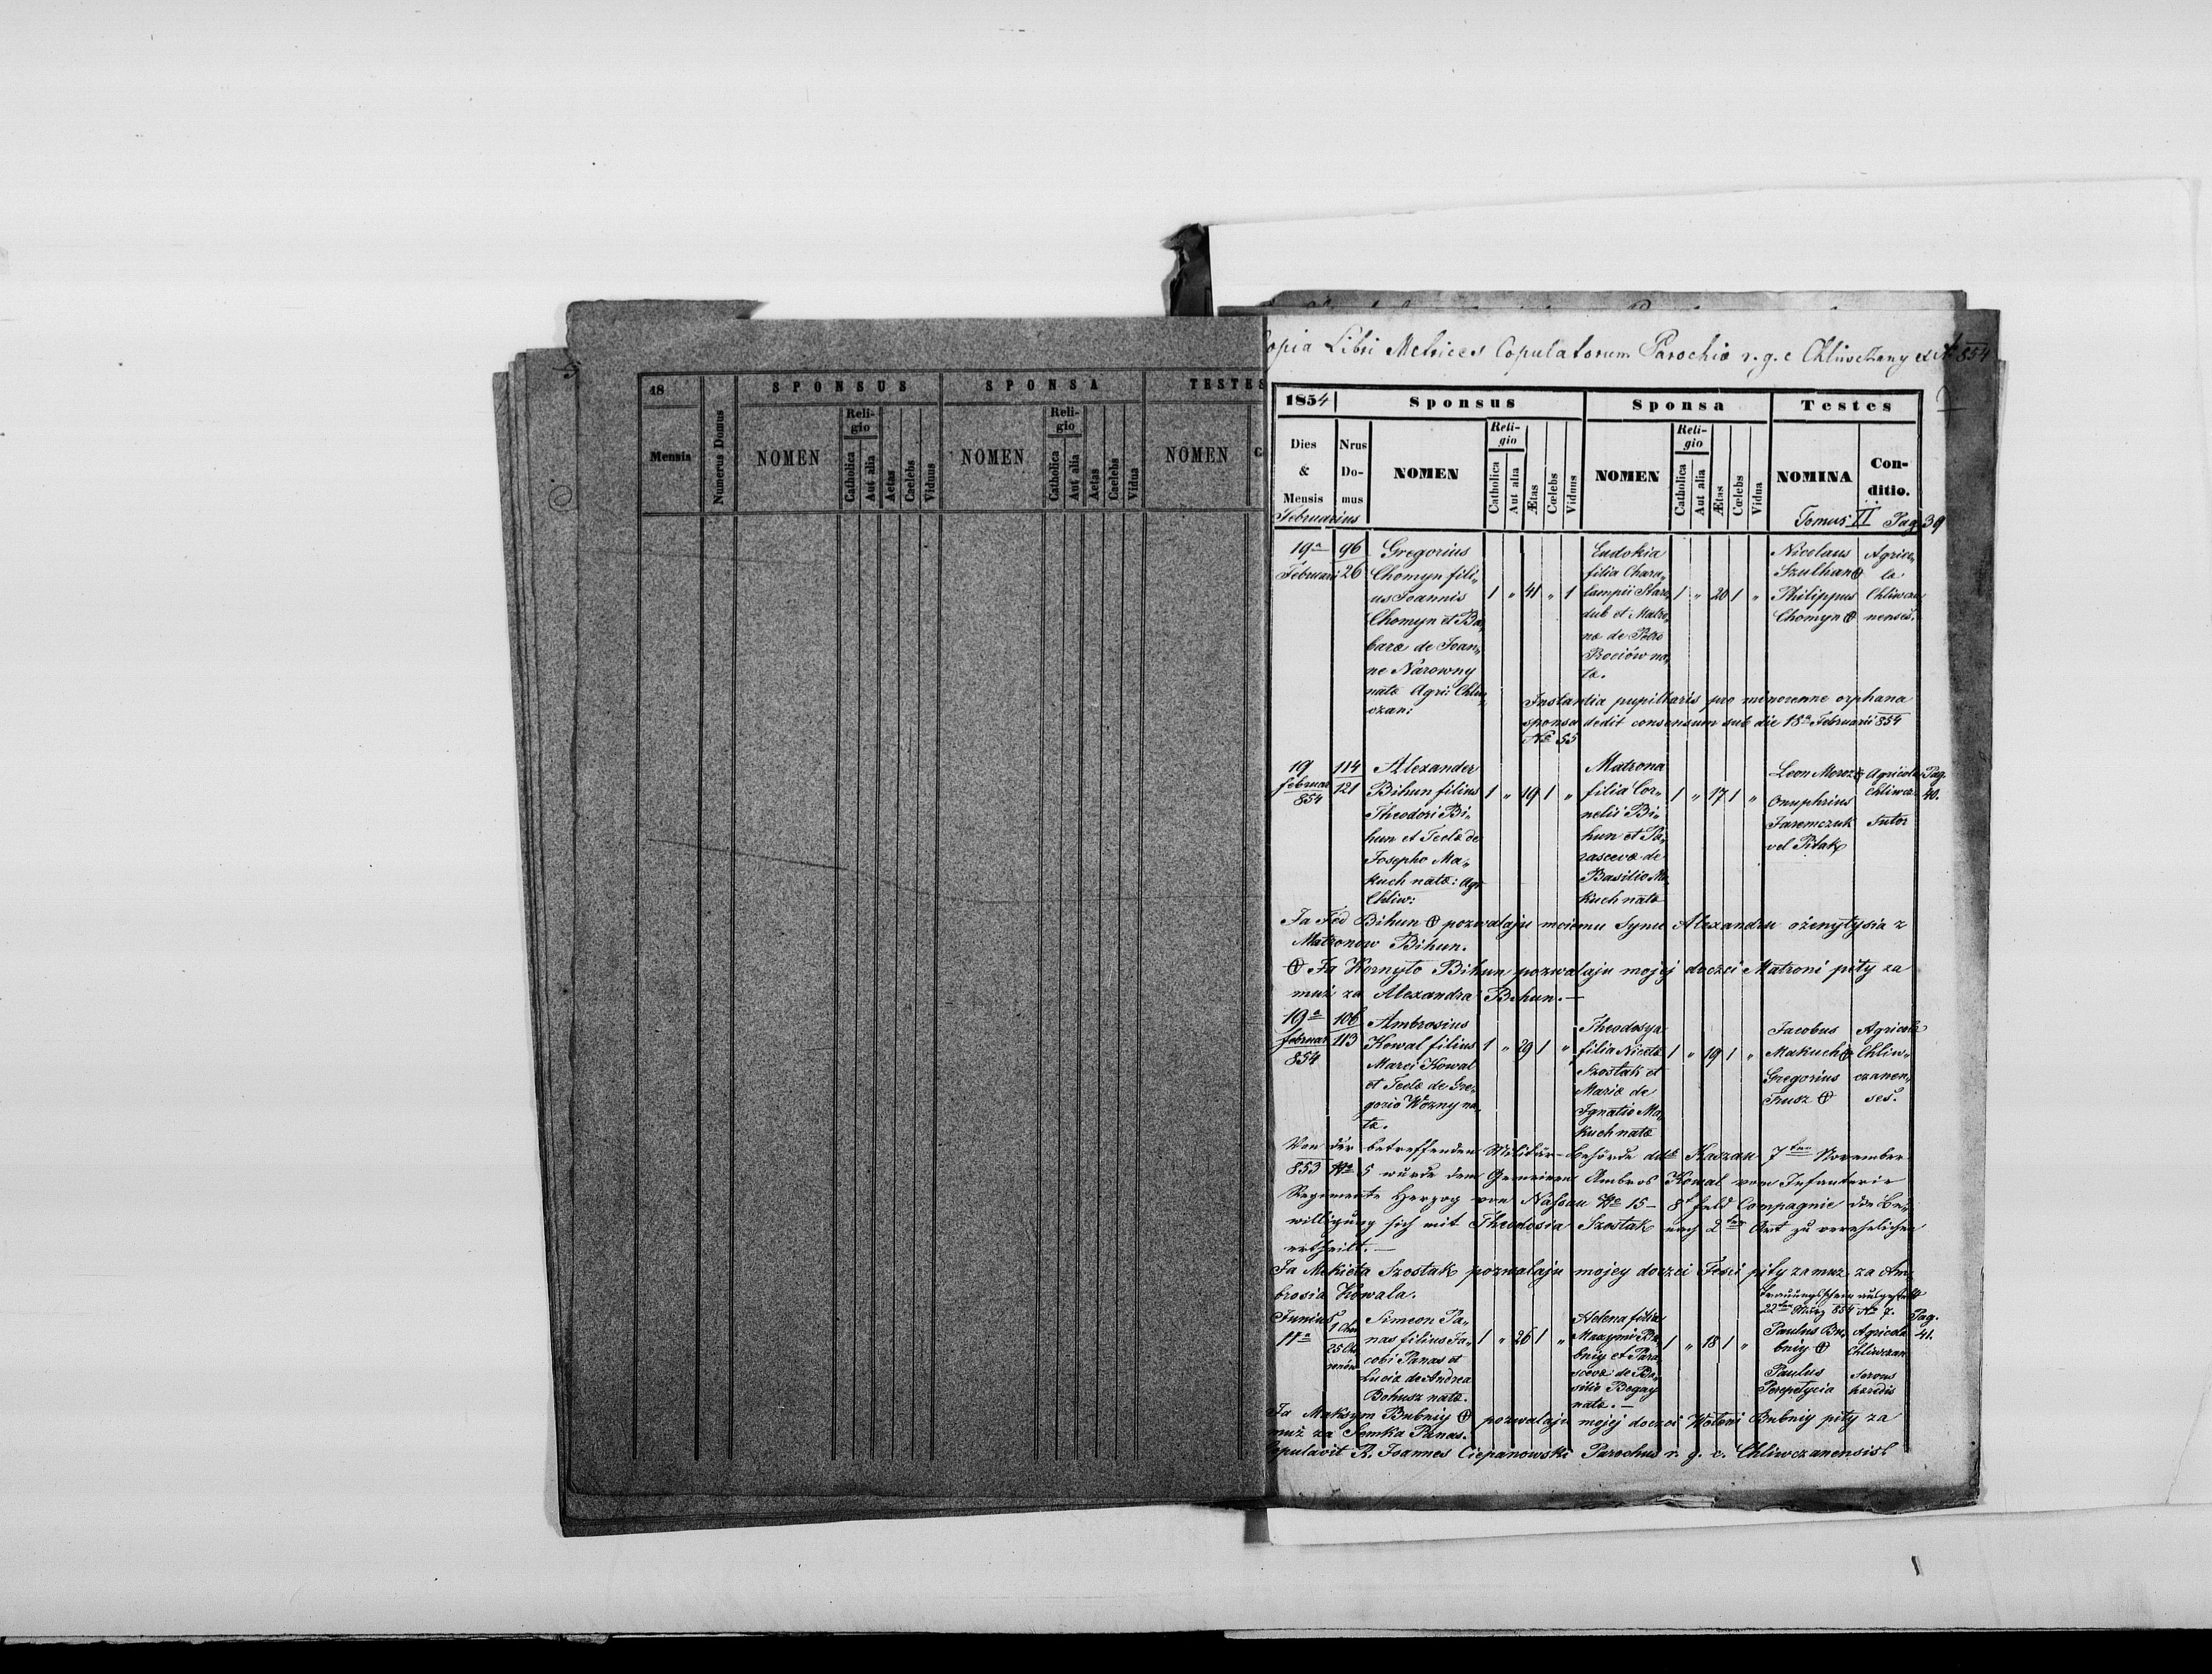 18
Mensis
Numerus Domus
SPONSUS
NOMEN
Religio
Catholica
Aut alia
Aetas
Caelebs
Viduus
SPONSA
NOMEN
Religio
Catholica
Aut alia
Aetas
Caelebs
Vidua
TESTES
NOMEN
opia Libri Metrices Copulatorum Parochiæ r. g. c Chliwczany
854
1854
Sponsus
Sponsa
Testes
Dies
&
Mensis
Nrus
Do-
mus
NOMEN
Reli-
gio
Catholica
Aut alia
Ætas
Cœlebs
Viduus
NOMEN
Reli-
gio
Catholica
Aut alia
Ætas
Cœlebs
Vidua
NOMINA
Con-
ditio.
Februarius
Tomus II Pag 39
19a
Februari
96
26
Gregorius
Chomyn fili„
us Joannis
Chomyn et Ba„
baræ de Joan„
ne Narowny
natæ Agri: Chliw„
czan:
1 „ 41 „ 1
Eudokia
filia Chara„
lampii Staro
dub et Matro„
næ de Petro
Prociów na„
tæ.
1 „ 20 1 „
Nicolaus
Szulhan
Philippus
Chomyn
Agrico„
læ
Chliwcza
nenses.
Instantia pupillaris pro minorenne orphana
sponsa dedit consensum sub die 18a Februarii 854
No 55
19
februar
854
114
121
Alexander
Bihun filius
Theodori Bi„
hun et Teclæ de
Josepho Ma„
kuch natæ: Agr
Chliw:
1 „ 19 1 „
Matrona
filia Cor„
nelii Bi„
hun et Pa„
rascevæ de
Basilio Ma
kuch natæ
1 „ 17 1 „
Leon Moroz
Onuphrius
Jaremczuk
vel Pitak
Agricolæ
Chliwcz.
Tutor
Pag.
40.
Ja Fed Bihun pozwalaju moiemu Synu Alexandru ożenytysia z
Matronow Bihun.
Ja Kornyło Bihun pozwalaju mojej doczci Matroni pity za
muż za Alexandra Bihun. —
19a
februar
854
106
113
Ambrosius
Kowal filius
Marci Kowal
et Teclæ de Gre„
gorio Wozny na„
tæ.
1 „ 29 1 „
Theodosya
filia Nicetæ
Szostak et
Mariæ de
Ignatio Ma
kuch natæ
1 „ 19 1 „
Jacobus
Makuch
Gregorius
Trusz
Agricolæ
Chliw„
czanen„
ses.
Von der betreffenden Militär-Behörde ddto Kaszau 7ten November
853 No 5 wurde dem Gemeinen Ambros Kowal vom Infanterie
Regimente Herzog von Nassau No 15 – 8t feld Compagnie die Be„
willigung sich mit Theodosia Szostak nach 2ter Art zu verehelichen
ertheilt. —
Ja Mikieta Szostak pozwalaju mojey doczci Fesci pity za muż za Am„
brosia Kowala.
Trauungsschein ausgestellt
22ten März 854 No 7.
Junius
11a
Simeon Pa„
nas filius Ja„
cobi Panas et
Luciæ de Andrea
Bohusz natæ.
1 „ 26 1 „
Helena filia
Maxymi Bu
bniy et Para
scevæ de Ba„
silio Bogay
natæ. —
1 „ 18 1 „
Paulus Bu„
bniy
Paulus
Perepetycia
Agricola
Chliwczan
servus
heredis
Pag.
41.
Ja Maksym Bubniy pozwalaju mojej doczci Wołeni Bubniy pity za
muż za Semka Panas.
Copulavit R. Joannes Ciepanowski Parochus r. g. c. Chliwczanensis